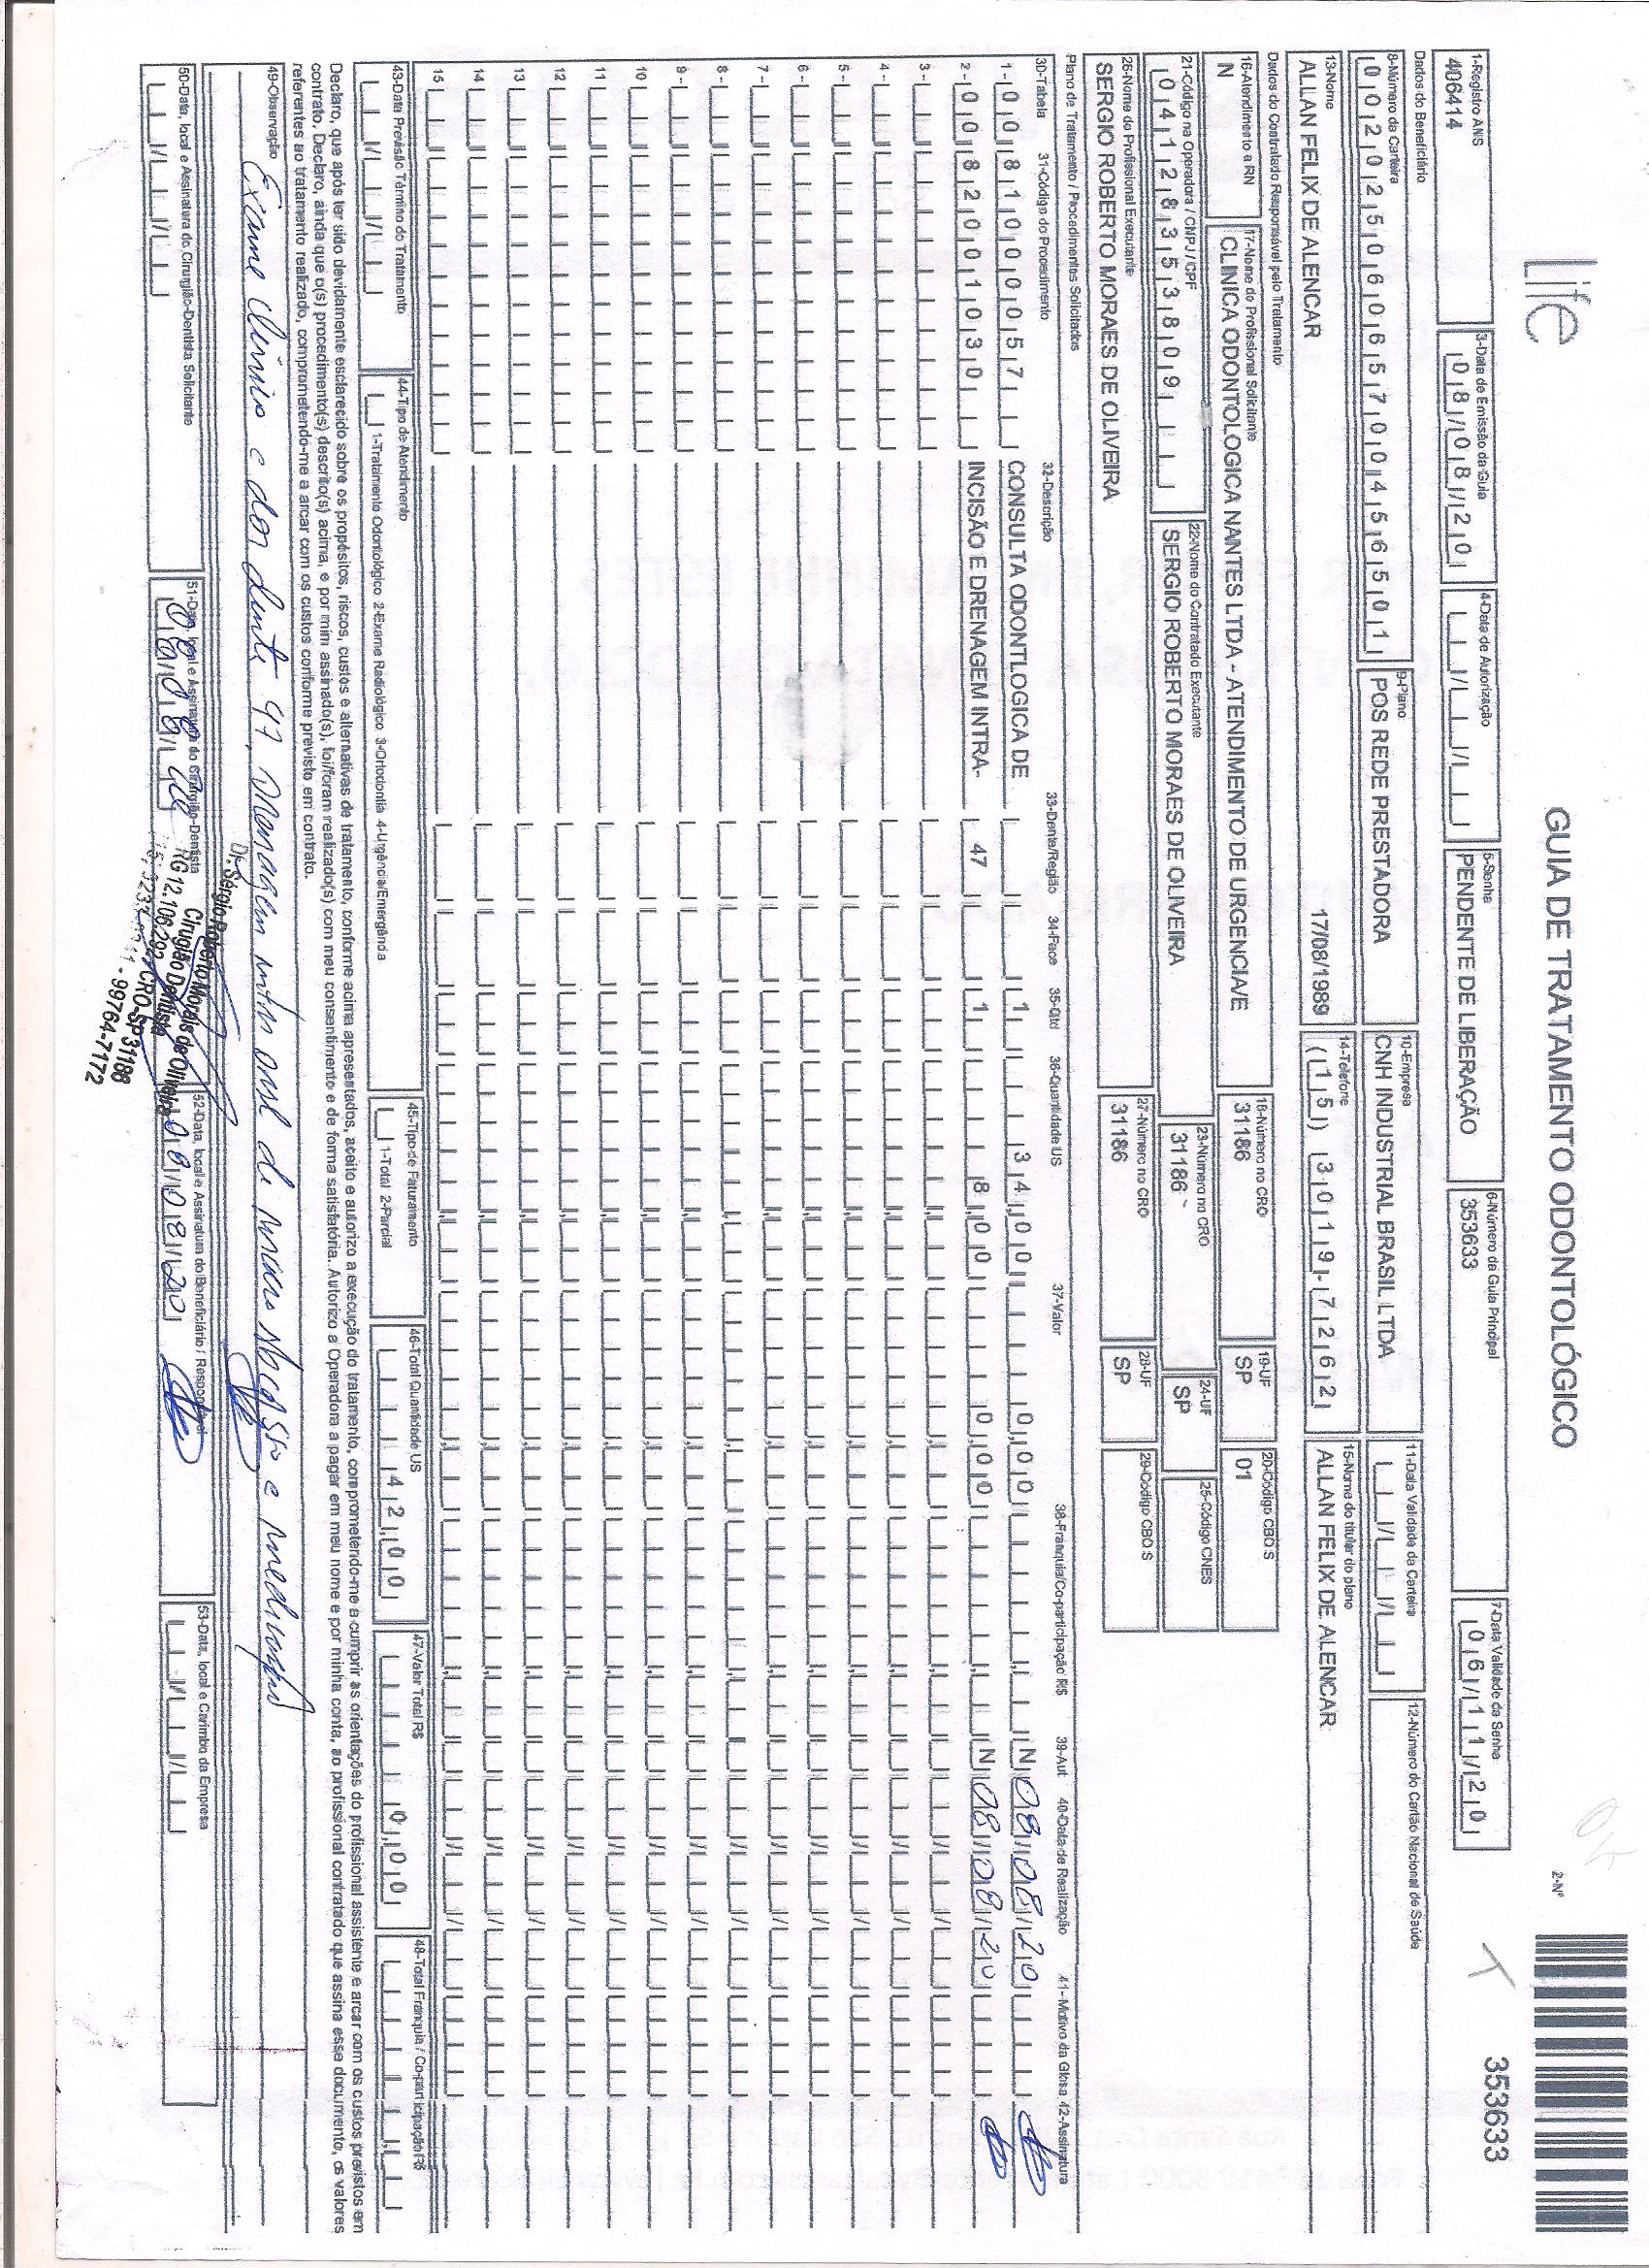 Life
GUIA DE TRATAMENTO ODONTOLÓGICO
2-Nº
353633
1-Registro ANS
406414
3-Data de Emissão da Guia
08/08/20
4-Data de Autorização
5-Senha
PENDENTE DE LIBERAÇÃO
6-Número da Guia Principal
353633
7-Data Validade da Senha
06/11/20
Dados do Beneficiário
8-Número da Carteira
00202506065700456501
9-Plano
POS REDE PRESTADORA
10-Empresa
CNH INDUSTRIAL BRASIL LTDA
11-Data Validade da Carteira
12-Número do Cartão Nacional de Saúde
13-Nome
ALLAN FELIX DE ALENCAR
17/08/1989
14-Telefone
(15) 3019-7262
15-Nome do titular do plano
ALLAN FELIX DE ALENCAR
Dados do Contratado Responsável pelo Tratamento
16-Atendimento a RN
N
17-Nome do Profissional Solicitante
CLINICA ODONTOLOGICA NANTES LTDA - ATENDIMENTO DE URGENCIA/E
18-Número no CRO
31186
19-UF
SP
20-Código CBO S
01
21-Código na Operadora / CNPJ / CPF
04128353809
22-Nome do Contratado Executante
SERGIO ROBERTO MORAES DE OLIVEIRA
23-Número no CRO
31186
24-UF
SP
25-Código CNES
26-Nome do Profissional Executante
SERGIO ROBERTO MORAES DE OLIVEIRA
27-Número no CRO
31186
28-UF
SP
29-Código CBO S
Plano de Tratamento / Procedimentos Solicitados
30-Tabela 31-Código do Procedimento 32-Descrição 33-Dente/Região 34-Face 35-Qtd 36-Quantidade US 37-Valor 38-Franquia/Co-participação R$ 39-Aut 40-Data de Realização 41-Motivo da Glosa 42-Assinatura
1- 00 8100005 7 CONSULTA ODONTLOGICA DE 1 34,00 0,00 N 08/08/20
2- 00 82001030 INCISÃO E DRENAGEM INTRA- 47 1 8,00 0,00 N 08/08/20
3-
4-
5-
6-
7-
8-
9-
10
11
12
13
14
15
43-Data Previsão Término do Tratamento
44-Tipo de Atendimento
1-Tratamento Odontológico 2-Exame Radiológico 3-Ortodontia 4-Urgência/Emergência
45-Tipo de Faturamento
1-Total 2-Parcial
46-Total Quantidade US
42,00
47-Valor Total R$
0,00
48-Total Franquia / Co-participação R$
Declaro, que após ter sido devidamente esclarecido sobre os propósitos, riscos, custos e alternativas de tratamento, conforme acima apresentados, aceito e autorizo a execução do tratamento, comprometendo-me a cumprir as orientações do profissional assistente e arcar com os custos previstos em
contrato. Declaro, ainda que o(s) procedimento(s) descrito(s) acima, e por mim assinado(s), foi/foram realizado(s) com meu consentimento e de forma satisfatória. Autorizo a Operadora a pagar em meu nome e por minha conta, ao profissional contratado que assina esse documento, os valores
referentes ao tratamento realizado, comprometendo-me a arcar com os custos conforme previsto em contrato.
49-Observação
Exame clínico e dor dente 47, drenagem intra oral de
50-Data, local e Assinatura do Cirurgião-Dentista Solicitante
51-Data, local e Assinatura do Cirurgião-Dentista
52-Data, local e Assinatura do Beneficiário / Responsável
08/08/20
53-Data, local e Carimbo da Empresa
Dr. Sérgio Roberto Morais de Oliveira
Cirurgião Dentista
RG 12.106.292 CRO-SP 31186
99764-7172